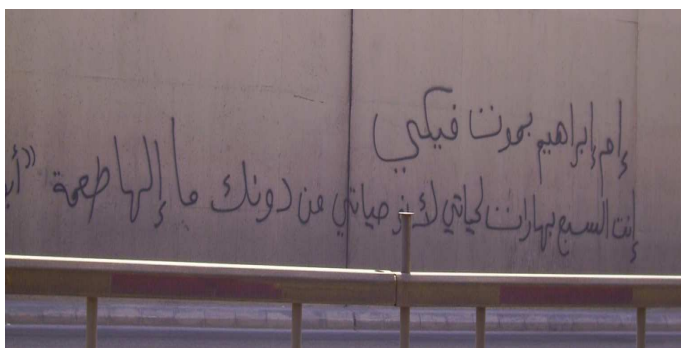 إم إبراهيم بموت فيكي
إنت السبع بهارات لحياتي لأنو حياتي من دونك ما إلها طعمة "أب